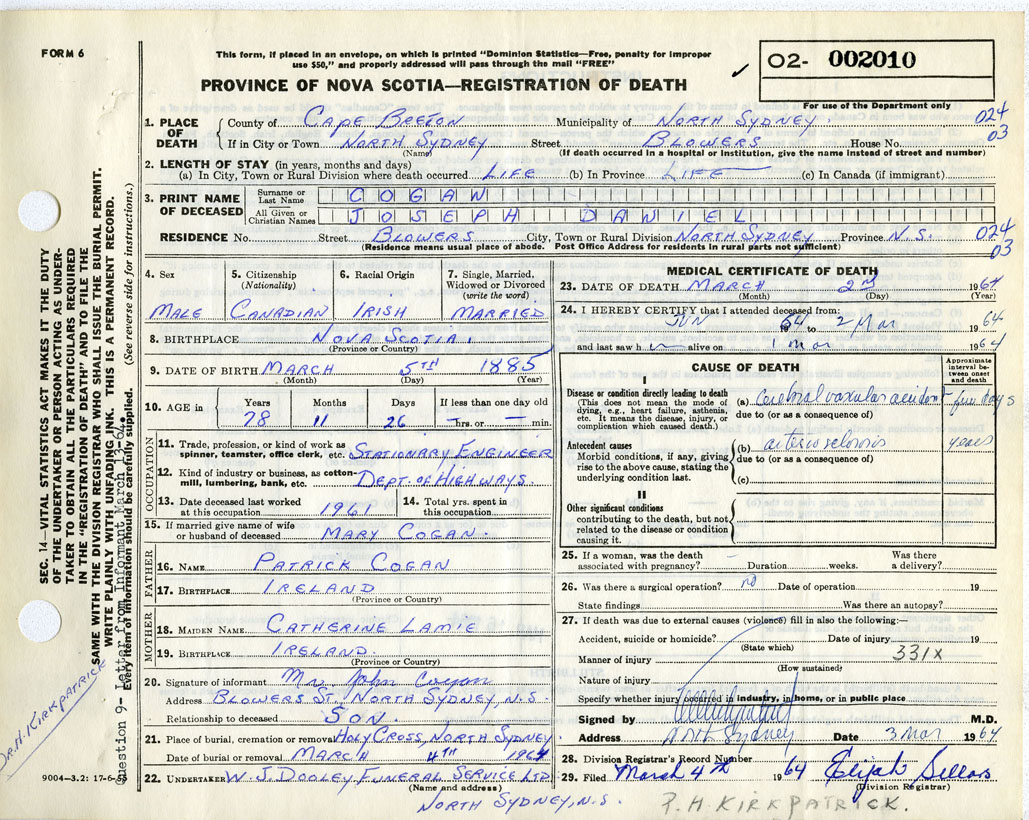 FORM 6
This form, if placed in an envelope, on which is printed "Dominion Statistics—Free, penalty for improper
use $50," and properly addressed will pass through the mail "FREE"
PROVINCE OF NOVA SCOTIA—REGISTRATION OF DEATH
✓
O2- 002010
For use of the Department only
1. PLACE OF DEATH
County of CAPE BRETON Municipality of NORTH SYDNEY. 024
If in City or Town NORTH SYDNEY Street BLOWERS House No. 03
(Name) (If death occurred in a hospital or institution, give the name instead of street and number)
2. LENGTH OF STAY (in years, months and days)
(a) In City, Town or Rural Division where death occurred LIFE (b) In Province LIFE (c) In Canada (if immigrant)
3. PRINT NAME OF DECEASED
Surname or Last Name COGAN
All Given or Christian Names JOSEPH DANIEL
RESIDENCE No. Street BLOWERS City, Town or Rural Division NORTH SYDNEY Province N.S. 024
(Residence means usual place of abode. Post Office Address for residents in rural parts not sufficient) 03
4. Sex
MALE
5. Citizenship
(Nationality)
CANADIAN
6. Racial Origin
IRISH
7. Single, Married,
Widowed or Divorced
(write the word)
MARRIED
8. BIRTHPLACE NOVA SCOTIA.
(Province or Country)
9. DATE OF BIRTH MARCH 5TH 1885
(Month) (Day) (Year)
10. AGE in Years Months Days If less than one day old
78 11 26 — hrs. or — min.
OCCUPATION
11. Trade, profession, or kind of work as
spinner, teamster, office clerk, etc. STATIONARY ENGINEER
12. Kind of industry or business, as cotton-
mill, lumbering, bank, etc. DEPT. OF HIGHWAYS.
13. Date deceased last worked
at this occupation 1961
14. Total yrs. spent in
this occupation
15. If married give name of wife
or husband of deceased MARY COGAN.
FATHER
16. NAME PATRICK COGAN
17. BIRTHPLACE IRELAND
(Province or Country)
MOTHER
18. MAIDEN NAME CATHERINE LAMIE
19. BIRTHPLACE IRELAND.
(Province or Country)
20. Signature of informant Mr. John Cogan
Address BLOWERS ST, NORTH SYDNEY, N.S
Relationship to deceased SON.
21. Place of burial, cremation or removal HOLY CROSS, NORTH SYDNEY
Date of burial or removal MARCH 4TH 1964
22. UNDERTAKER W. J. DOOLEY FUNERAL SERVICE LTD
(Name and address)
NORTH SYDNEY, N.S.
MEDICAL CERTIFICATE OF DEATH
23. DATE OF DEATH MARCH 2ND 1964
(Month) (Day) (Year)
24. I HEREBY CERTIFY that I attended deceased from:
JUN 1964 to 2 Mar 1964
and last saw h alive on 1 mar 1964
CAUSE OF DEATH
Approximate interval between onset and death
I
Disease or condition directly leading to death
(This does not mean the mode of
dying, e.g., heart failure, asthenia,
etc. It means the disease, injury, or
complication which caused death.)
(a) Cerebral vascular accident few days
due to (or as a consequence of)
Antecedent causes
Morbid conditions, if any, giving
rise to the above cause, stating the
underlying condition last.
(b) arteriosclerosis years
due to (or as a consequence of)
(c)
II
Other significant conditions
contributing to the death, but not
related to the disease or condition
causing it.
25. If a woman, was the death — Was there
associated with pregnancy? Duration weeks. a delivery?
26. Was there a surgical operation? no Date of operation 19
State findings Was there an autopsy?
27. If death was due to external causes (violence) fill in also the following:—
Accident, suicide or homicide? Date of injury 19
(State which)
331X
Manner of injury
(How sustained)
Nature of injury
Specify whether injury occurred in industry, in home, or in public place
Signed by M.D.
Address North Sydney Date 3 Mar 1964
28. Division Registrar's Record Number
29. Filed March 4th 1964 Elijah Sellars
(Division Registrar)
P. H. KIRKPATRICK.
SEC. 14—VITAL STATISTICS ACT MAKES IT THE DUTY
OF THE UNDERTAKER OR PERSON ACTING AS UNDER-
TAKER TO OBTAIN ALL THE PARTICULARS REQUIRED
IN THE "REGISTRATION OF DEATH" AND TO FILE THE
SAME WITH THE DIVISION REGISTRAR WHO SHALL ISSUE THE BURIAL PERMIT.
WRITE PLAINLY WITH UNFADING INK. THIS IS A PERMANENT RECORD.
Question 9- Letter from Informant March 13-64.
Every item of information should be carefully supplied. (See reverse side for instructions.)
DR. H. KIRKPATRICK
9004—3.2: 17-6-53